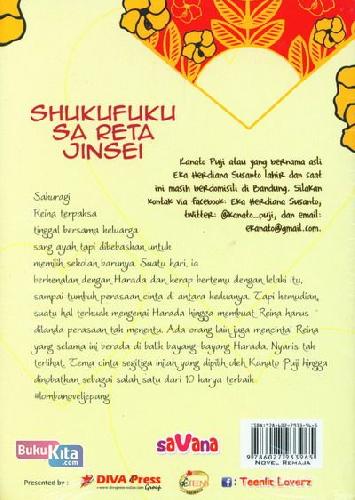 SHUKUFUKU
SA RETA
JINSEI
Kanato Puji atau yang bernama asli
Eka Herdiana Susanto lahir dan saat
ini masih berdomisili di Bandung. Silakan
kontak via facebook: Eka Herdiana Susanto,
twitter: @kanato_puji, dan email:
ekanato@gmail.com.
Saiuragi
Reina terpaksa
tinggal bersama keluarga
sang ayah tapi dibebaskan untuk
memilih sekolah barunya. Suatu hari, ia
berkenalan dengan Harada dan kerap bertemu dengan lelaki itu,
sampai tumbuh perasaan cinta di antara keduanya. Tapi kemudian,
suatu hal terkuak mengenai Harada hingga membuat Reina harus
dilanda perasaan tak menentu. Ada orang lain juga mencintai Reina
yang selama ini berada di balik bayang-bayang Harada. Nyaris tak
terlihat. Tema cinta segitiga inilah yang dipilih oleh Kanato Puji hingga
dinobatkan sebagai salah satu dari 10 karya terbaik
#lombanoveljepang
BukuKita.com
saVana
9786027933965
NOVEL REMAJA
Presented by :
DIVA Press
Group
: Teenlit Loverz